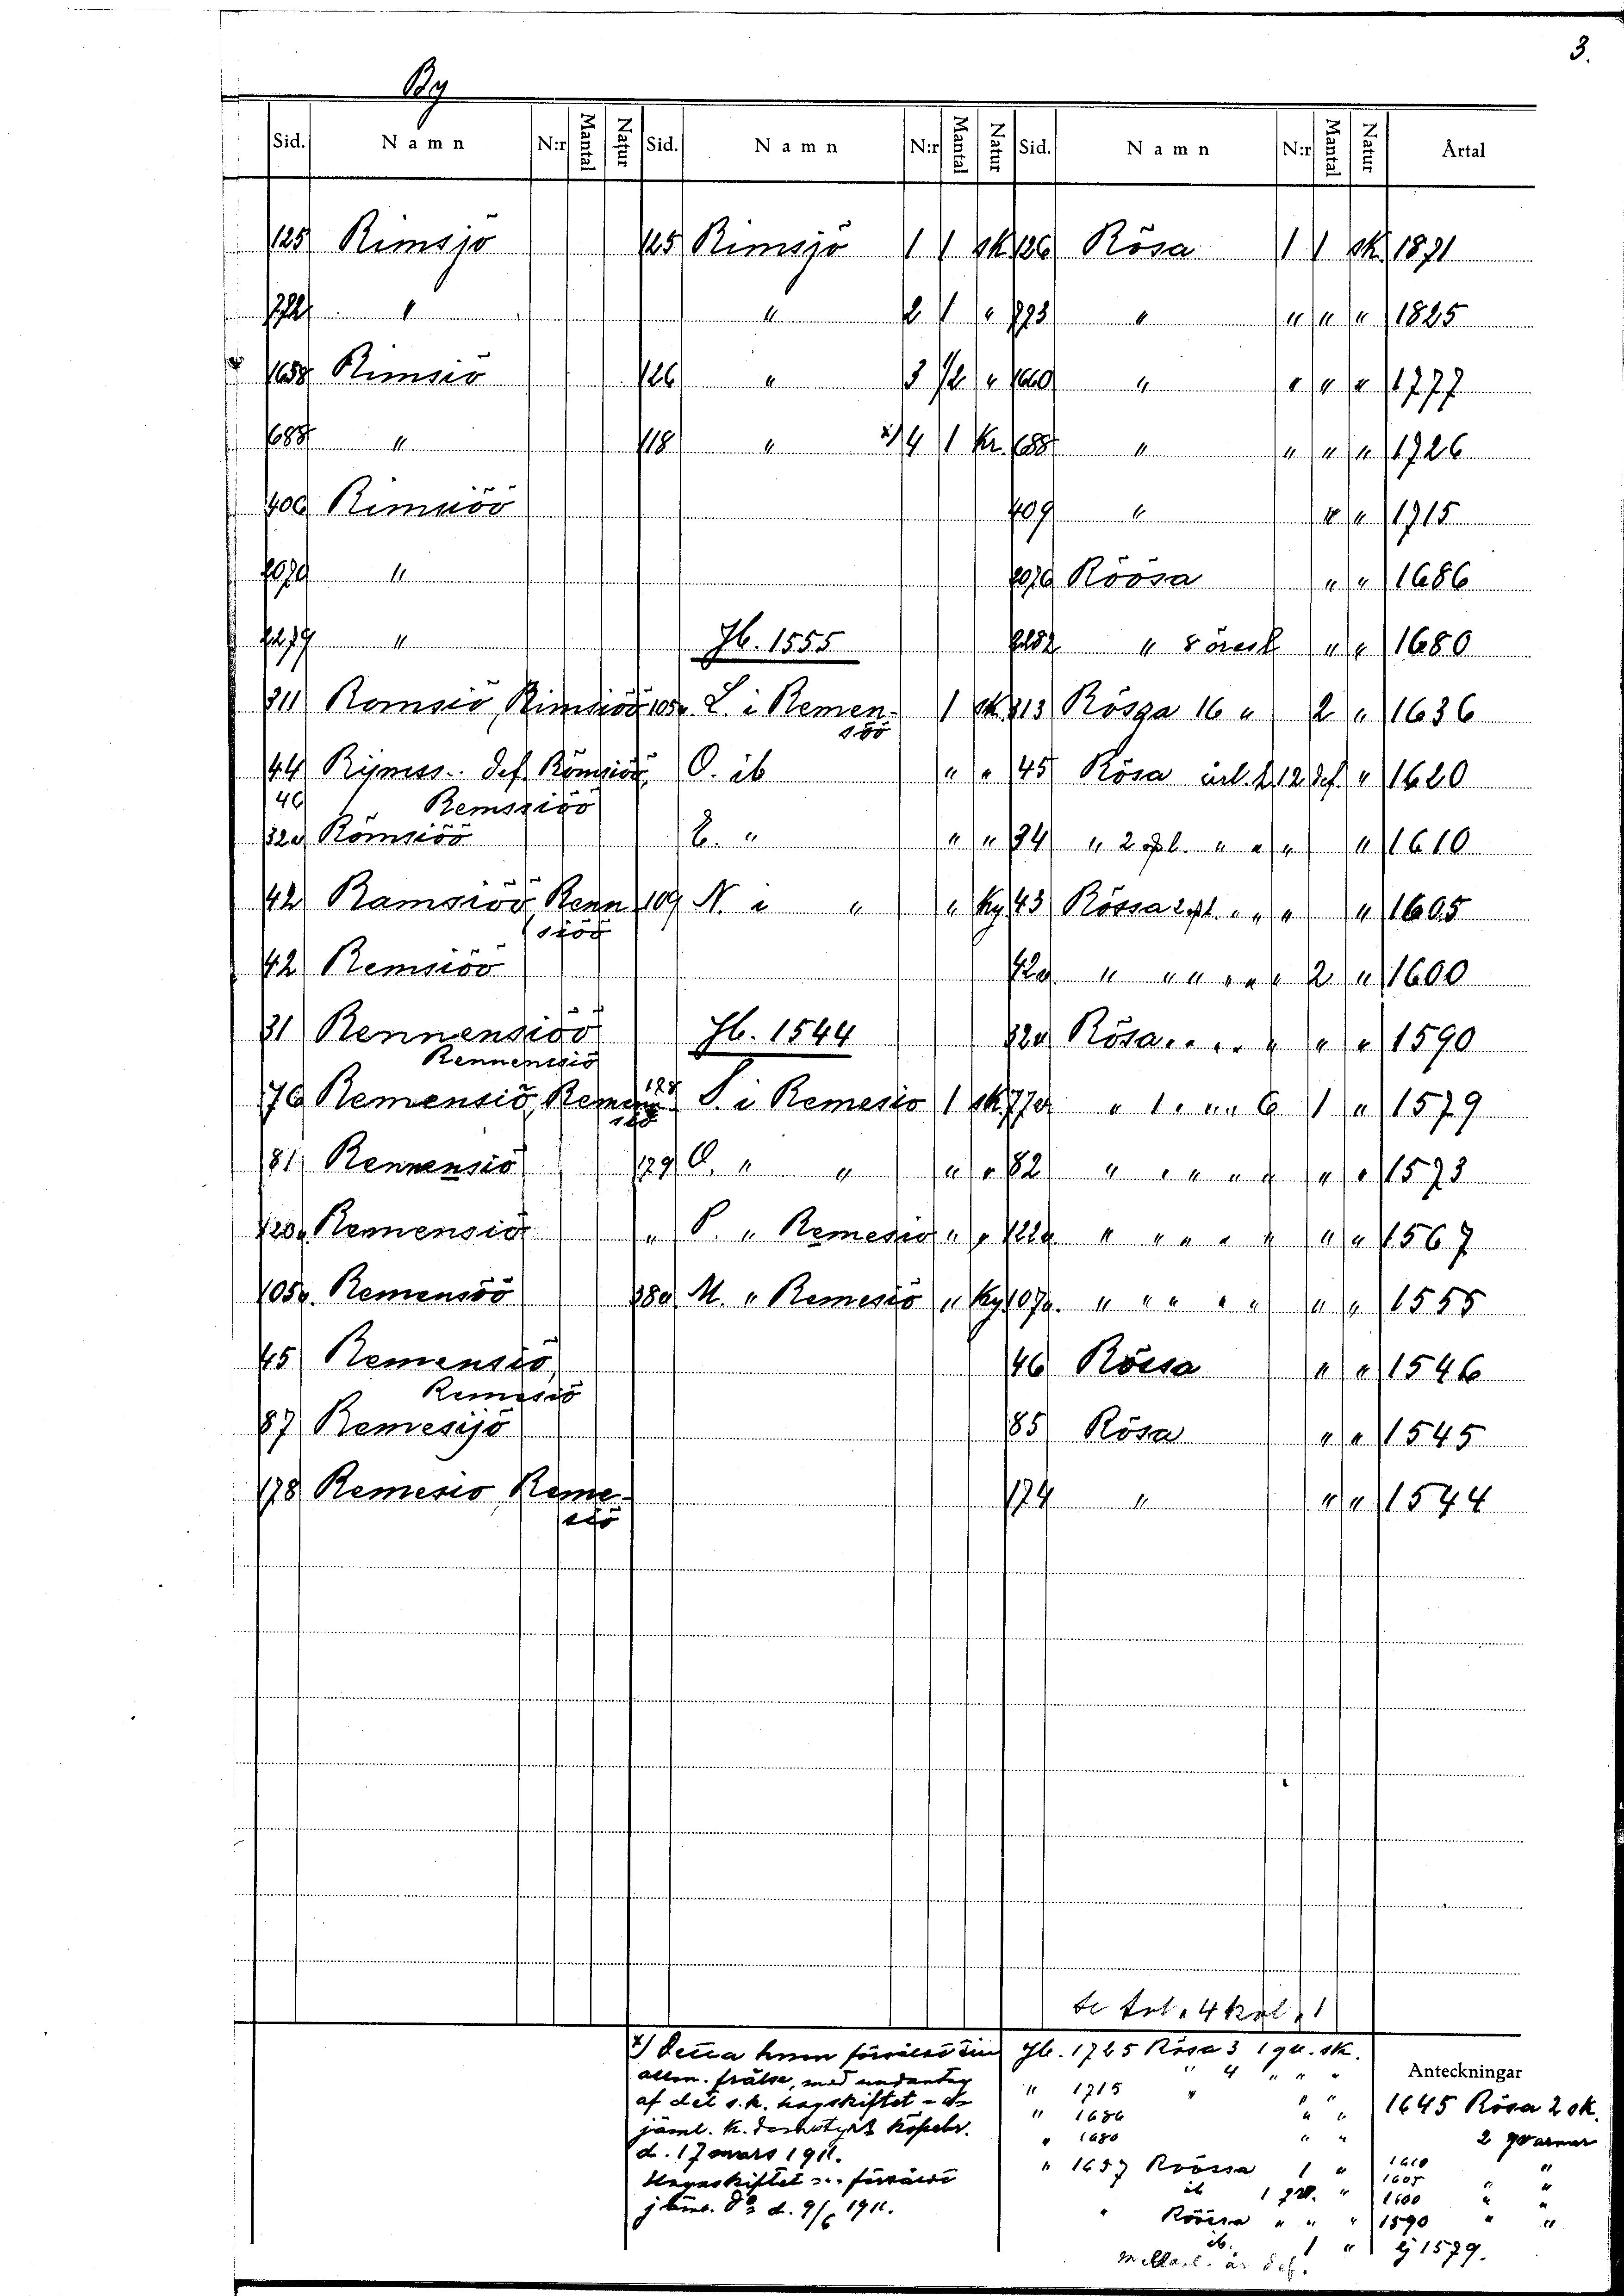 3.
By
Sid. Namn N:r Mantal Natur Sid. Namn N:r Mantal Natur Sid. Namn N:r Mantal Natur Årtal
125 Rimsjö 125 Rimsjö 1 1 sk. 126 Rösa 1 1 sk. 1871
772 " " 2 1 " 773 " " " " 1825
1658 Rimsiö 126 " 3 1/2 " 1660 " " " " 1777
688 " 118 " x) 4 1 Kr. 688 " " " " 1726
406 Rimsiöö 409 " " " 1715
2070 " 2076 Röösa " " 1686
2279 " Jb. 1555 2282 " 8 öresl " " 1680
311 Romsiö, Rimsiöö 105v. L. i Remen- 1 sk 313 Rösga 16 " 2 " 1636
söö
44 Rijmss.. def. Römsiöö, O. ib " " 45 Rösa 12 def. " 1620
46 Remssiöö
32v Römsiöö E. " " " 34 " 2 " " " " 1610
42 Ramsiöö, Renn 109 N. i " " Ky 43 Rössa 2 " " " " 1605
siöö
42 Remsiöö 42v " " " " " " 2 " 1600
31 Rennensiöö Jb. 1544 32v Rösa " " " " " " " 1590
Rennensiö
76 Remensiö, Remen 178 S. i Remesio 1 sk. 77v " 1 " " " 6 1 " 1579
siö
81 Rennensiö 179 O. " " " " 82 " " " " " " " 1573
120v Remensiö " P. " Remesio " " 122v " " " " " " " 1567
105v. Remensöö 380 M. " Remesiö " Ky. 107v. " " " " " " " 1555
45 Remensiö, 46 Rössa " " 1546
Remesiö
87 Remesijö 85 Rösa " " 1545
178 Remesio, Reme- 174 " " " 1544
siö
4 kol. 1
x) Detta hmn förvärvt
allm. frälse, med undantag
af det s.k. hagskiftet
jäml. K. köpebr.
d. 17 mars 1911.
Hagaskiftet förvärvt
jäml. d:o d. 9/6 1911.
Jb. 1725 Rösa 3 1 qv. sk.
" 4 " " "
" 1715 " " "
" 1686 " "
" 1680 " "
" 1657 Röössa 1 "
ib 1 qv. "
" Röössa " " "
ib. 1 "
mellanl. är def.
Anteckningar
1645 Rösa 2 sk.
2 qvarnar
1610 "
1605 " "
1600 " "
1590 " "
ej 1579.